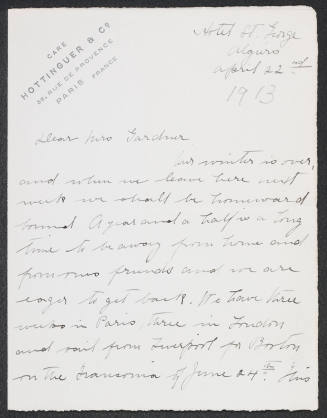 CARE
HOTTINGUER & Co
38, RUE DE PROVENCE
PARIS FRANCE
Hotel St. George
April 22nd
1913
Dear Mrs Gardner
Our winter is over,
and when we leave here next
week we shall be homeward
bound. A year and a half is a long
time to be away from home and
from ones friends and we are
eager to get back. We have three
weeks in Paris, three in London
and sail from Liverpool for Boston
on the Franconia of June 24th. This